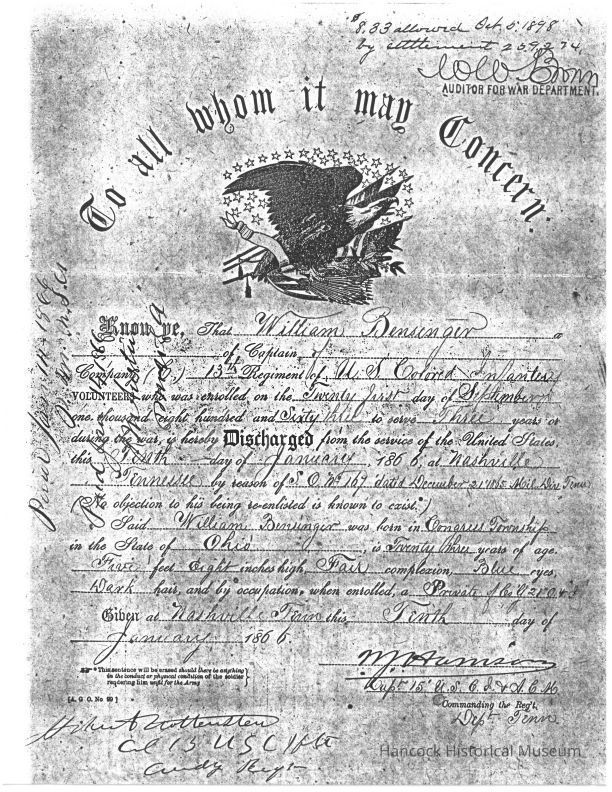 $8.33 allowed Oct 5 1898
by settlement
AUDITOR FOR WAR DEPARTMENT.
To all whom it may Concern.
Know ye, That William Bensinger a
of Captain
Company (C.) 13th Regiment of U. S. Colored Infantry
VOLUNTEERS who was enrolled on the Twenty first day of September
one thousand eight hundred and Sixty to serve Three years or
during the war, is hereby Discharged from the service of the United States,
this Tenth day of January, 1866, at Nashville
Tennessee by reason of S. O. No 167 dated December 21 1865 Mil. Div. Tenn
(No objection to his being re-enlisted is known to exist.*)
Said William Bensinger was born in Congress Township
in the State of Ohio, is Twenty three years of age,
Five feet Eight inches high, Fair complexion, Blue eyes,
Dark hair, and by occupation, when enrolled, a Private of Co G 21 O
Given at Nashville Tenn this Tenth day of
January 1866.
*This sentence will be erased should there be anything
in the conduct or physical condition of the soldier
rendering him unfit for the Army
[A. G. O. No 99]
Capt 15 U. S. C. I. & A. C. M.
Commanding the Reg't.
Dept Tenn
Col 13 U S C Inft
Comdg Regt
Hancock Historical Museum